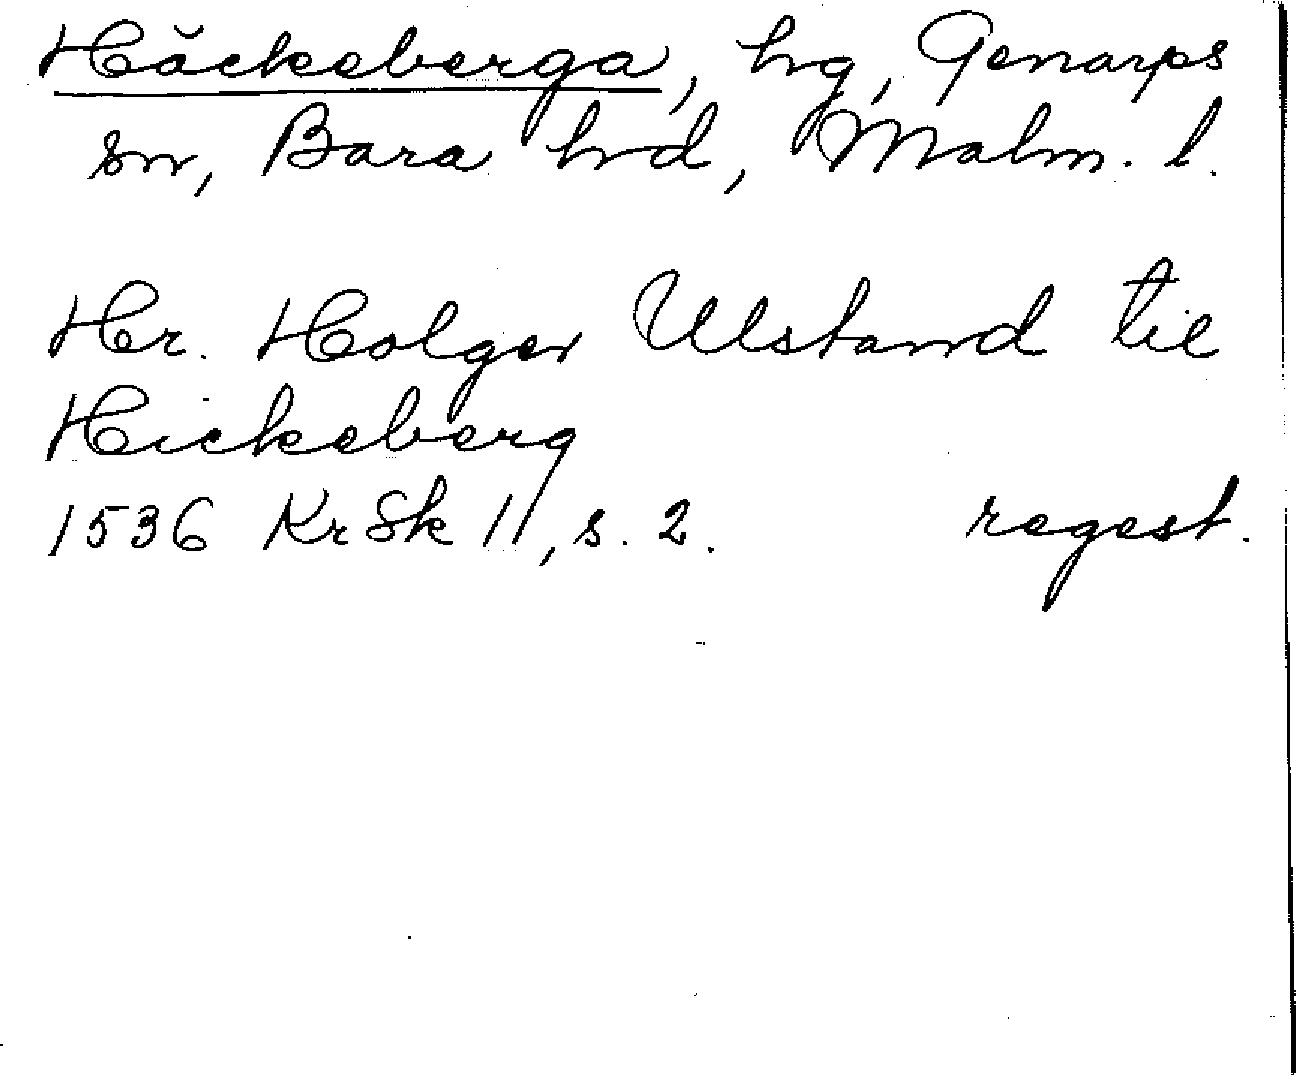 Häckeberga, hg, Genarps
sn, Bara hrd, Malm. l.
Hr. Holger Ulstand til
Hickeberg
1536 KrSk 11, s. 2. regest.